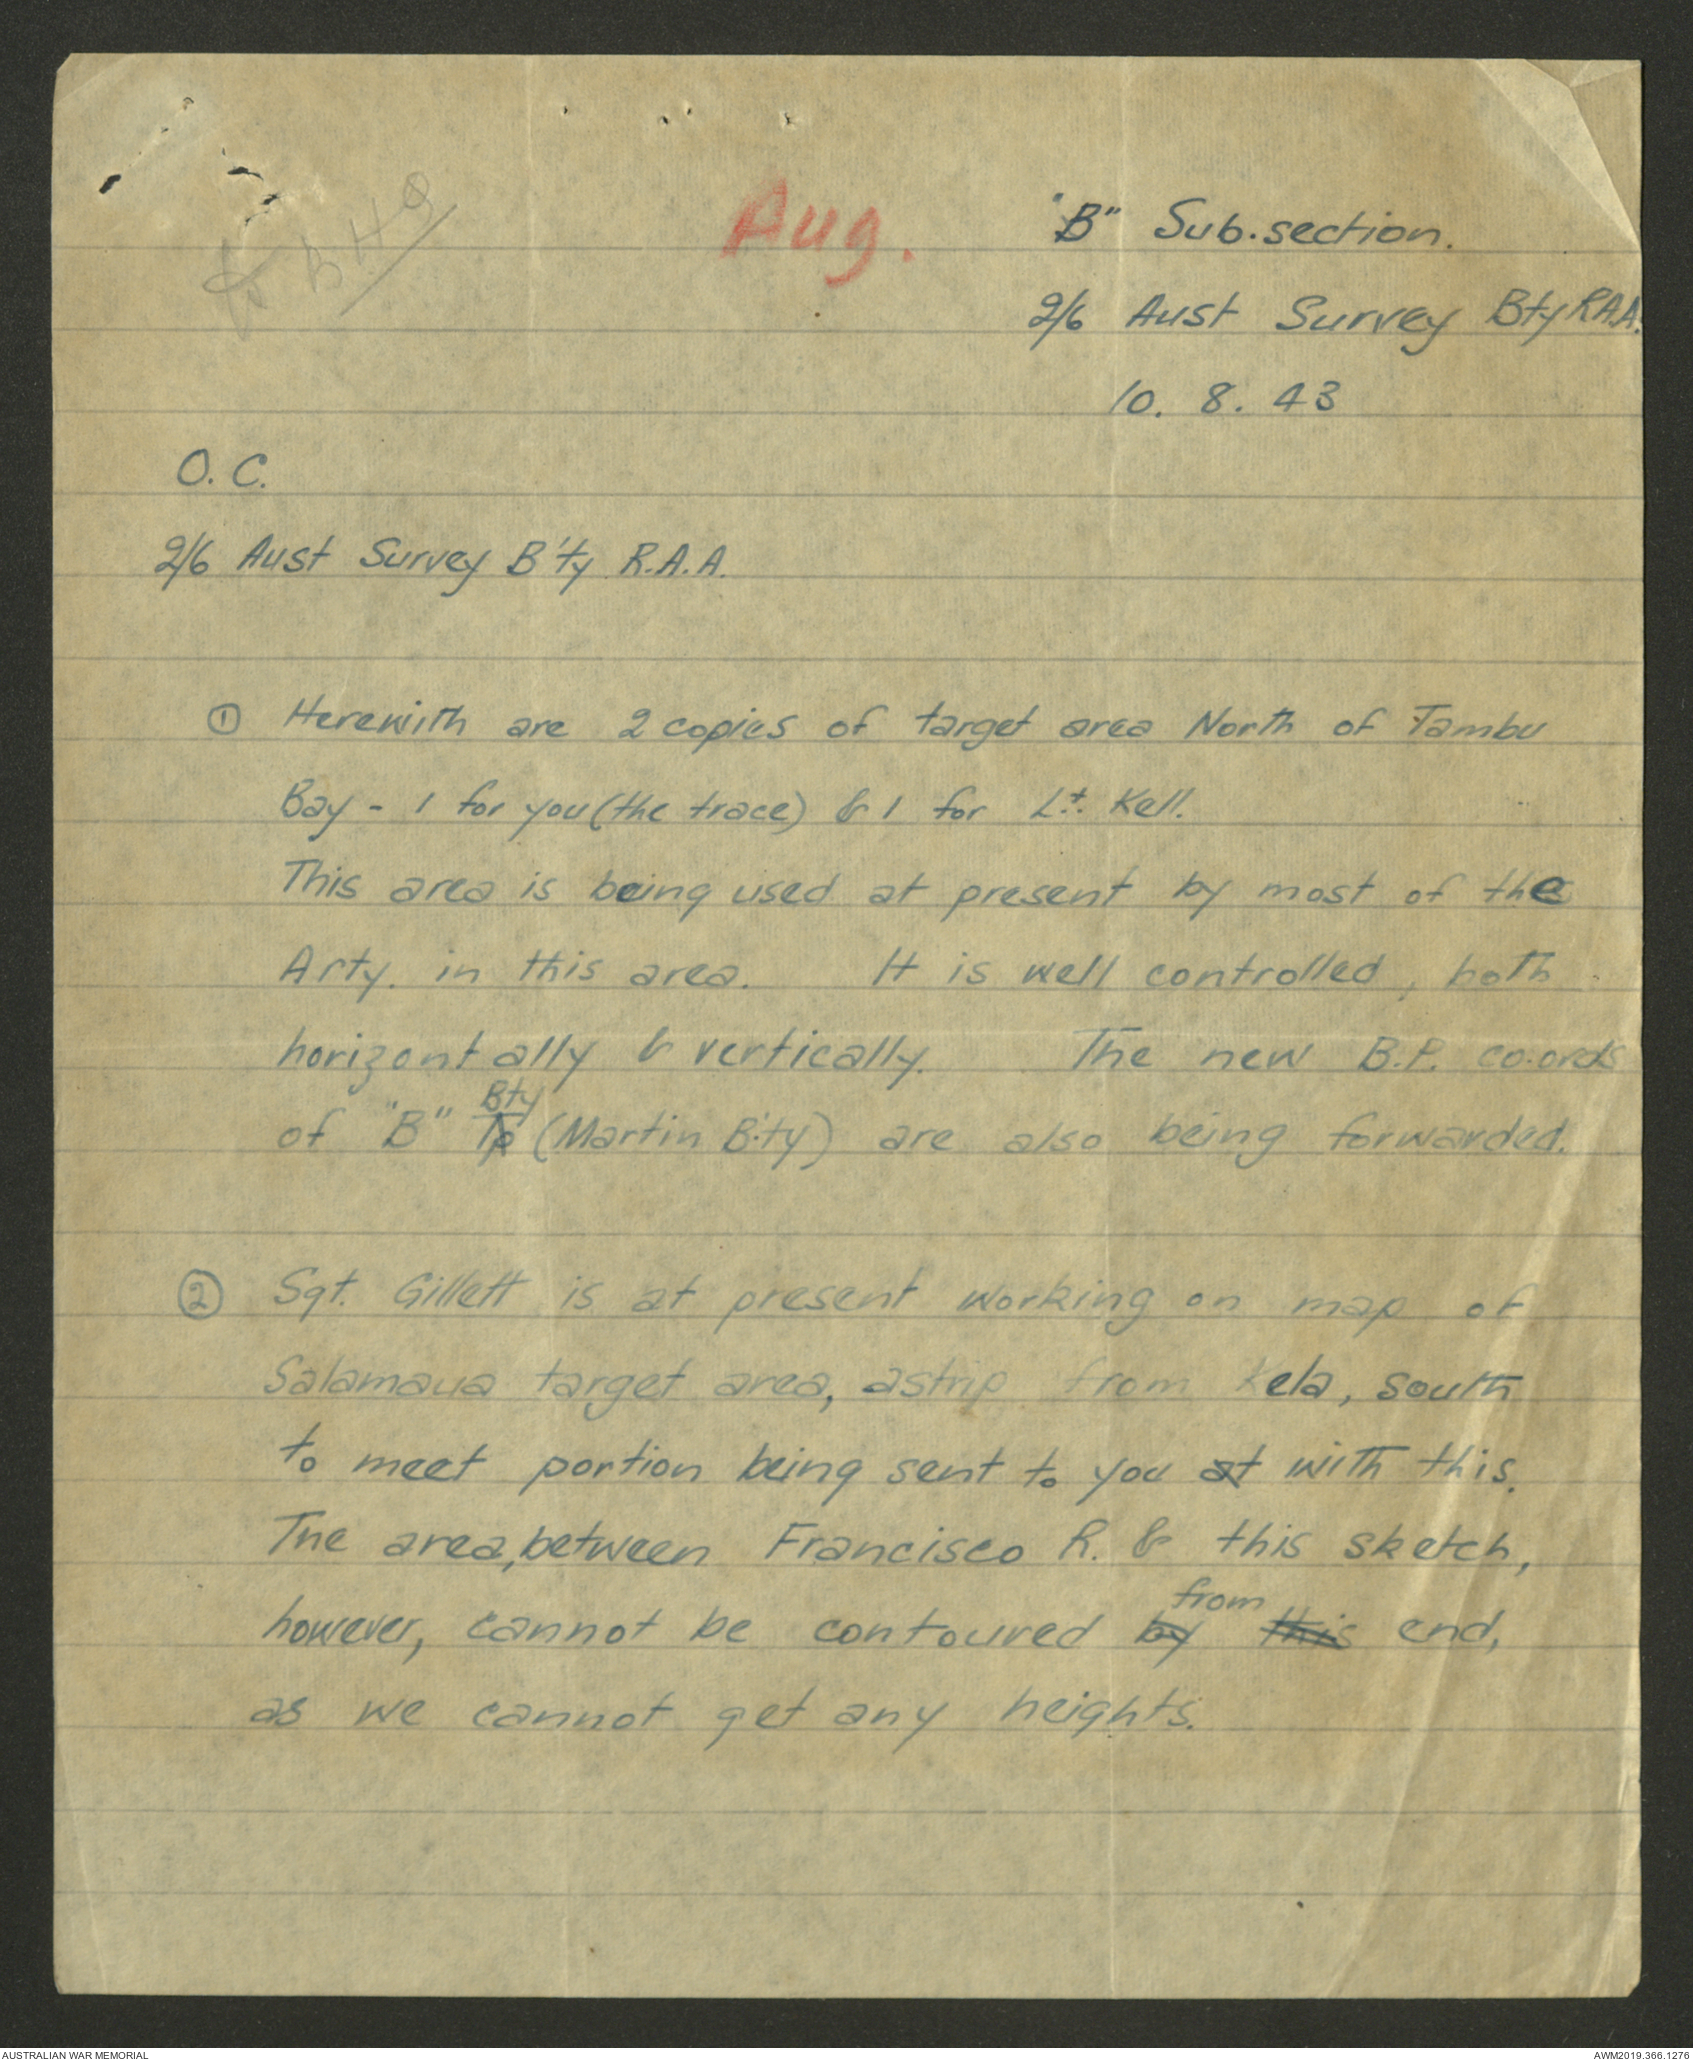 Aug.
"B" Sub.section.
2/6 Aust Survey Bty R.A.A.
10. 8. 43
O. C.
2/6 Aust Survey B'ty R.A.A.
① Herewith are 2 copies of target area North of Tambu
Bay - 1 for you (the trace) & 1 for Lt. Kell.
This area is being used at present by most of the
Arty. in this area. It is well controlled, both
horizontally & vertically. The new B.P. co.ords
Bty
of "B" Tp (Martin B'ty) are also being forwarded.
② Sgt. Gillett is at present working on map of
Salamaua target area, a strip from Kela, south
to meet portion being sent to you at with this.
The area, between Francisco R. & this sketch,
from
however, cannot be contoured by this end,
as we cannot get any heights.
AUSTRALIAN WAR MEMORIAL
AWM2019.366.1276